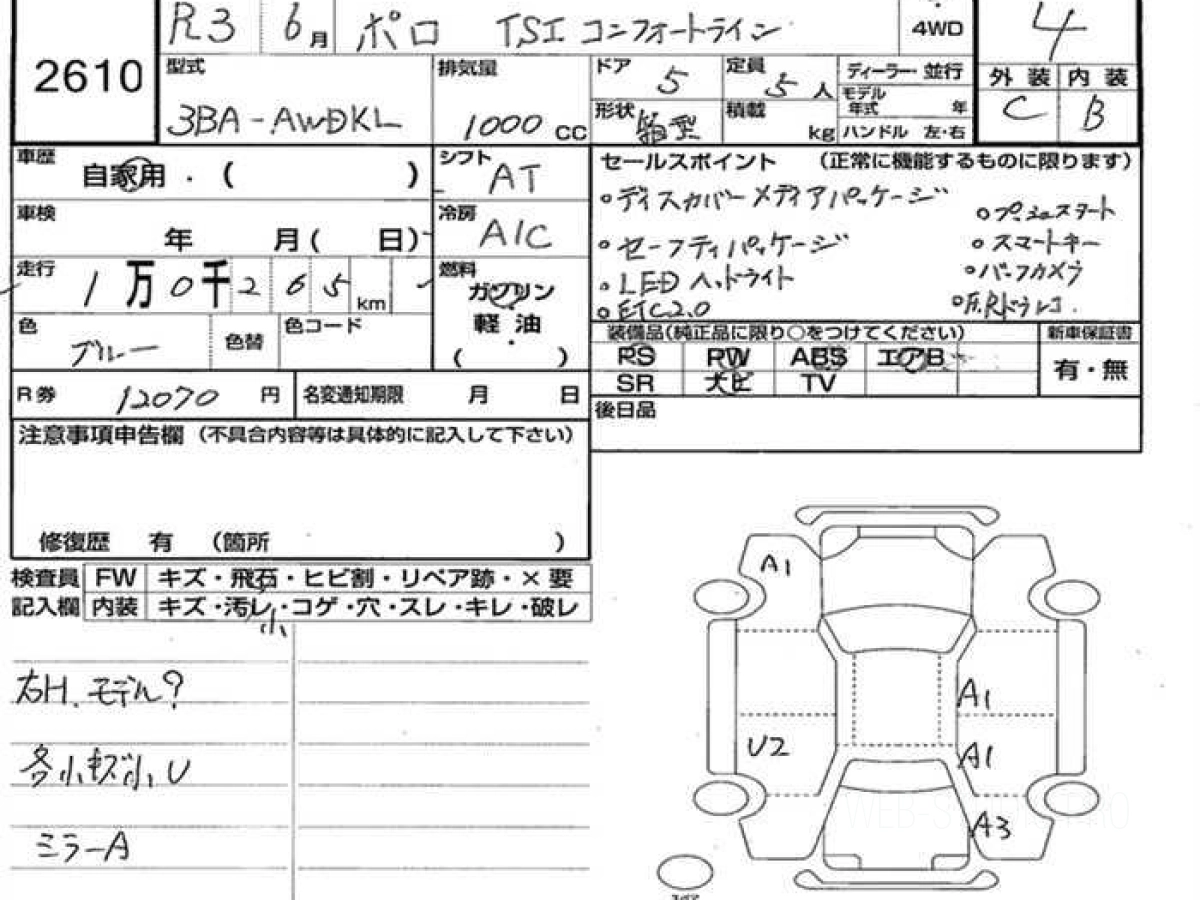 2610
R3 6月 ポロ TSI コンフォートライン ・4WD 4
型式 3BA-AWDKL
排気量 1000 CC
ドア 5 定員 5人 ディーラー・並行
形状 箱型 積載 kg モデル年式 年
ハンドル 左・右
外装 内装
C B
車歴 自家用・( )
シフト AT
車検 年 月( 日)
冷房 A/C
走行 1万0千265km
燃料 ガソリン 軽油・( )
色 ブルー 色替 色コード
R券 12070 円 名変通知期限 月 日
セールスポイント (正常に機能するものに限ります)
・ディスカバーメディアパッケージ ・プッシュスタート
・セーフティパッケージ ・スマートキー
・LEDヘッドライト ・バックカメラ
・ETC2.0 ・F.Rドラレコ.
装備品(純正品に限り○をつけてください) 新車保証書
PS PW ABS エアB 有・無
SR ナビ TV
後日品
注意事項申告欄 (不具合内容等は具体的に記入して下さい)
修復歴 有 (箇所 )
検査員 FW キズ・飛石・ヒビ割・リペア跡・×要
記入欄 内装 キズ・汚レ・コゲ・穴・スレ・キレ・破レ
小
右H.モデル?
各小キズ小U
ミラーA
A1
A1
U2
A1
A3